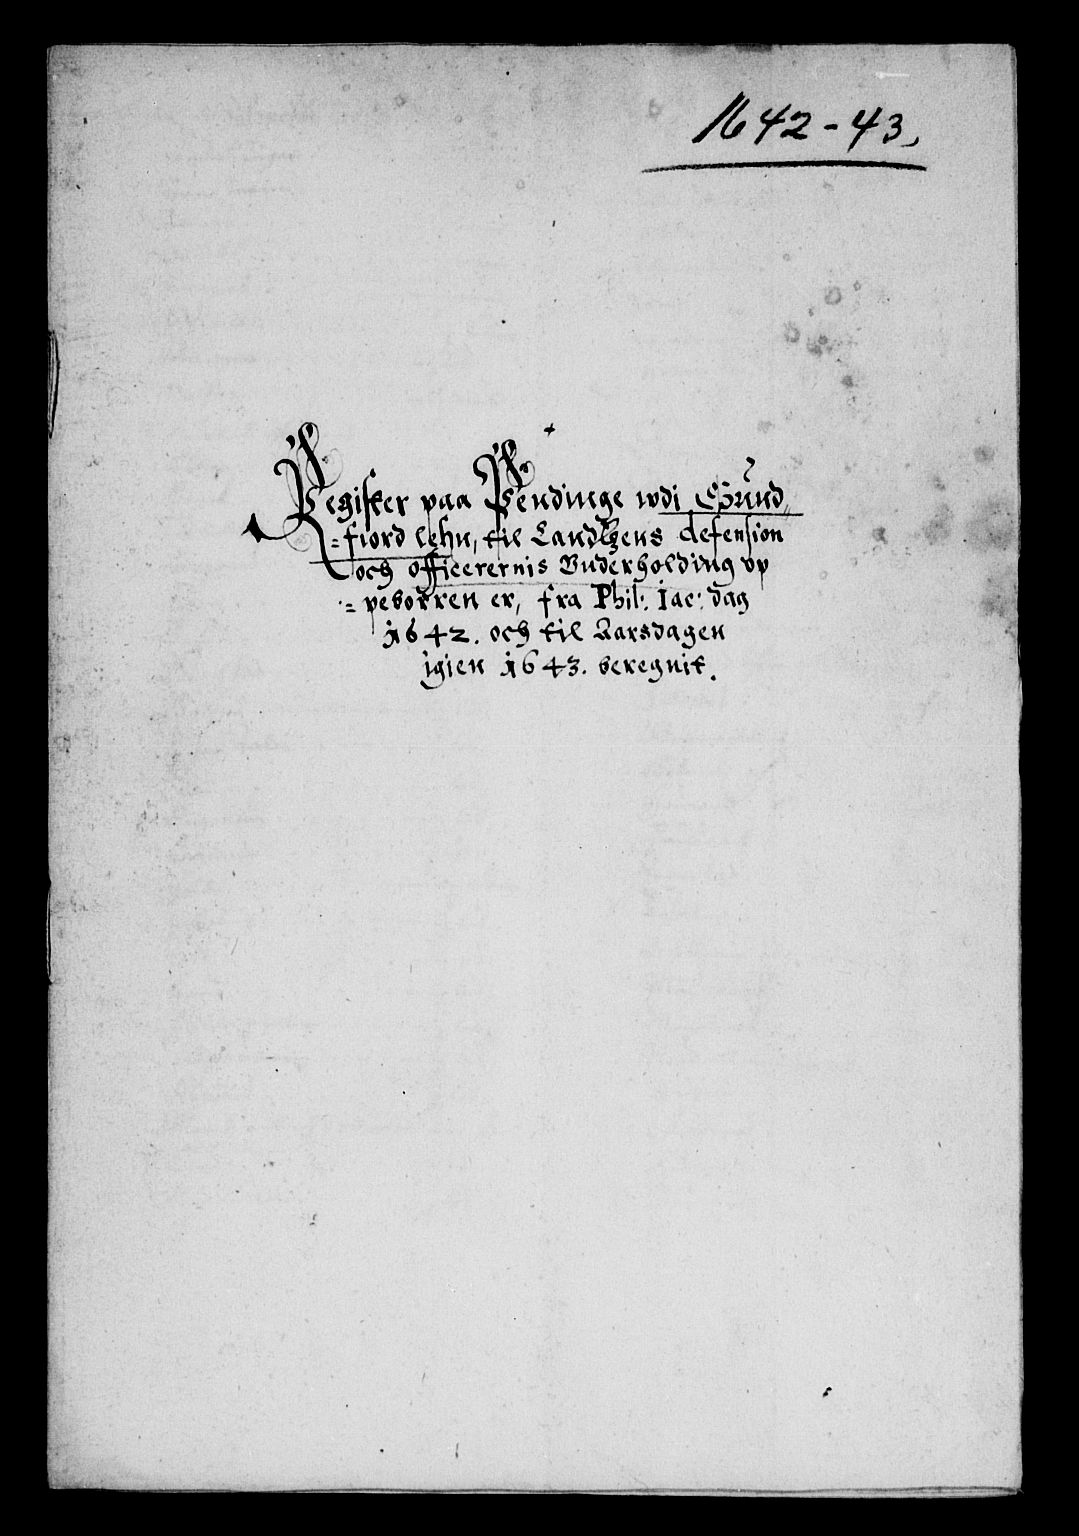 1642-43,
Register paa Pendinge udi Grund,
=fiord lehn, til Landtzens defension
och officerernis Vnderholding vp
=peborren er, fra Phil: Jac: dag
1642. och til Aarsdagen
igien 1643. beregnit.